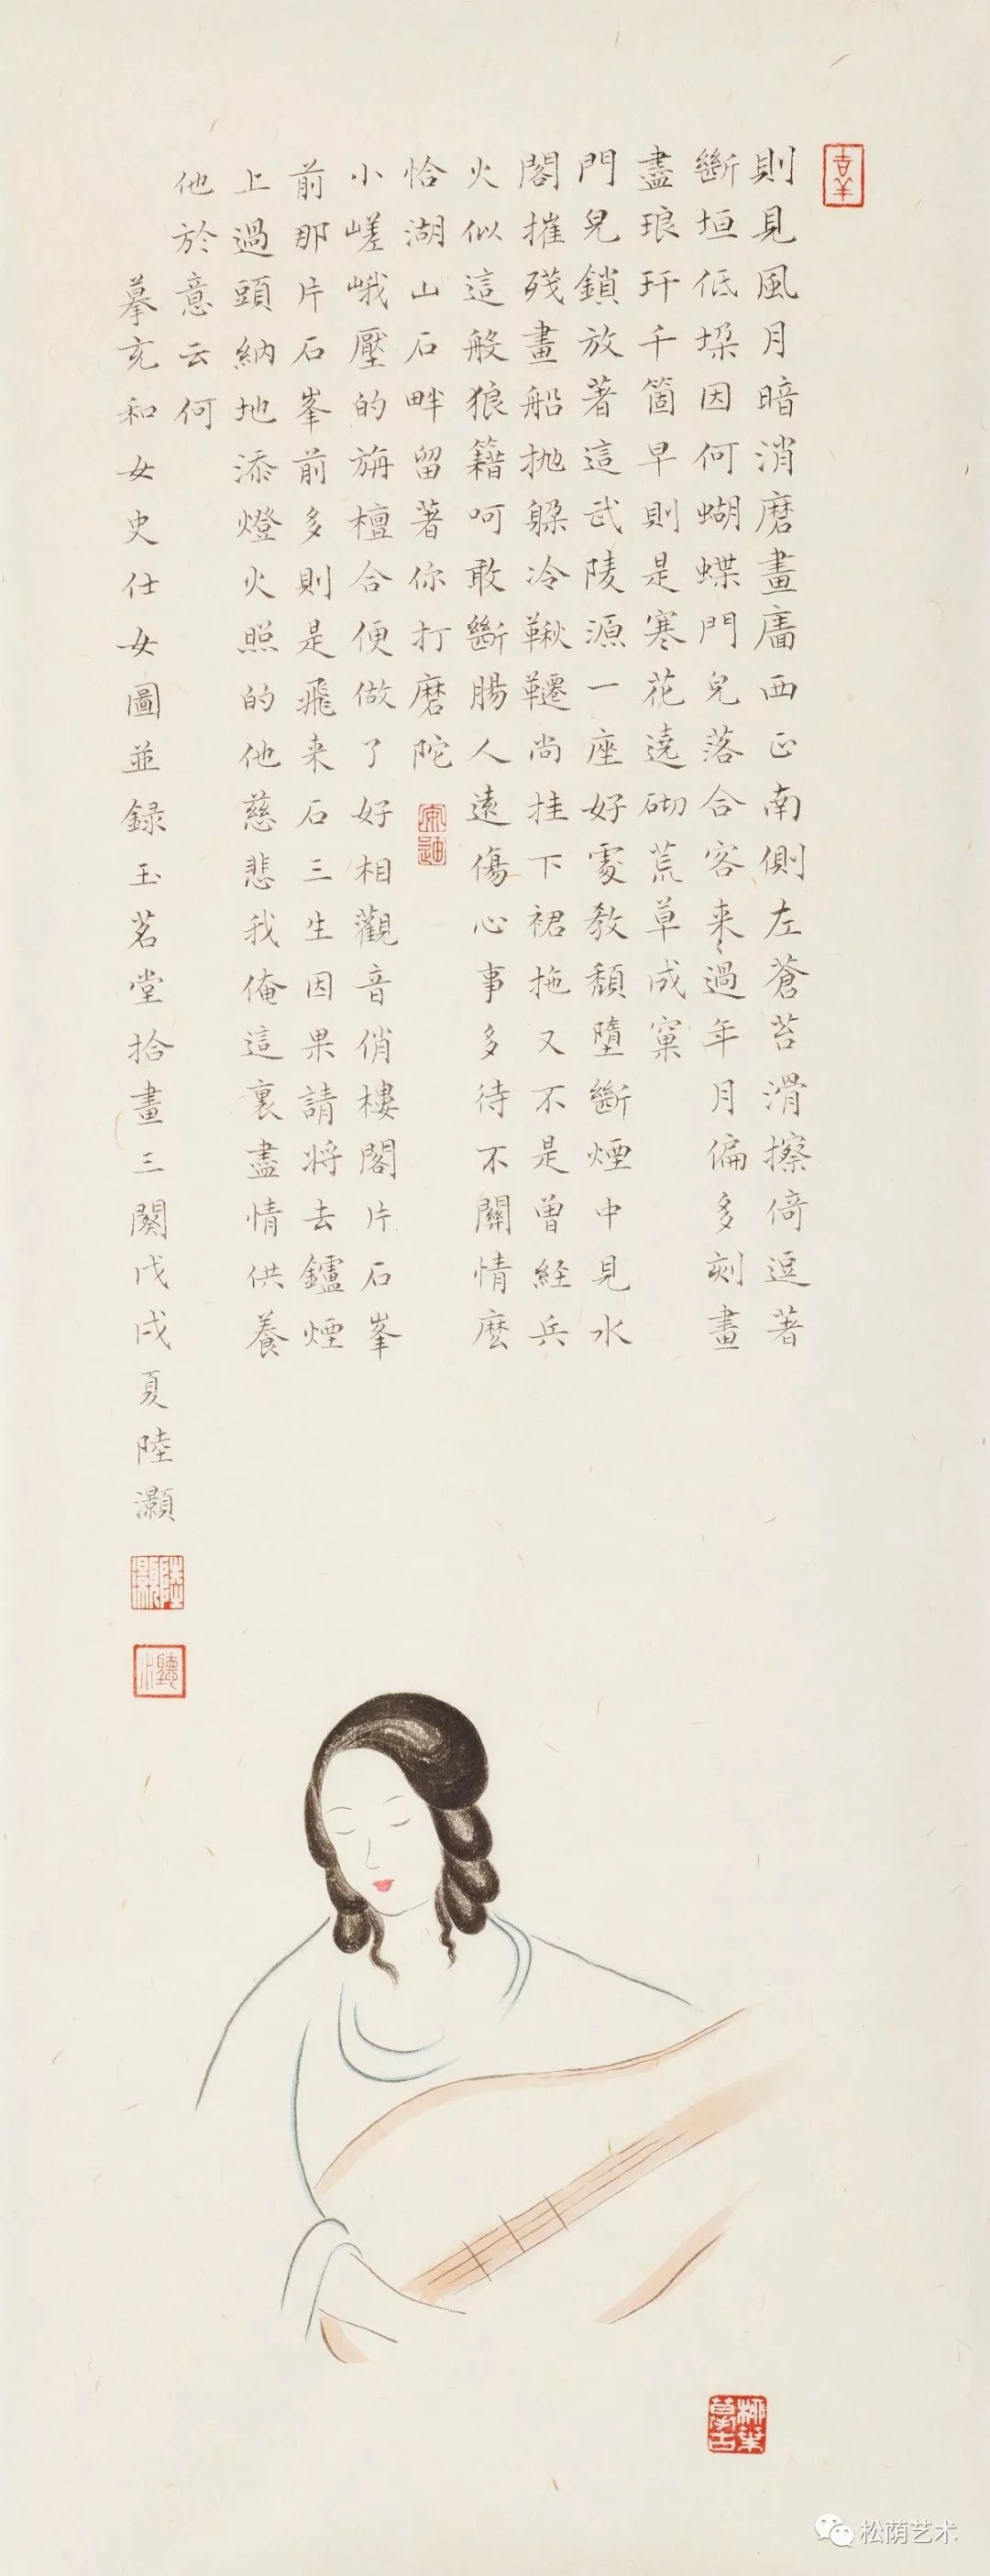 吉羊
則見風月暗消磨畫廧西正南側左蒼苔滑擦倚逗著
斷垣低垜因何蝴蝶門兒落合客来〻過年月偏多刻畫
盡琅玕千箇早則是寒花遶砌荒草成窠
門兒鎖放著這武陵源一座好處教頹墮斷煙中見水
閣摧殘畫船抛躱冷鞦韆尚挂下裙拖又不是曾経兵
火似這般狼籍呵敢斷腸人遠傷心事多待不關情麽
恰湖山石畔留著你打磨陀
小嵯峨壓的旃檀合便做了好相觀音俏樓閣片石峯
前那片石峯前多則是飛来石三生因果請将去鑪煙
上過頭納地添燈火照的他慈悲我俺這裏盡情供養
他於意云何
摹充和女史仕女圖並録玉茗堂拾畫三闋戊戌夏陸灝
陸灝
聽水
松荫艺术